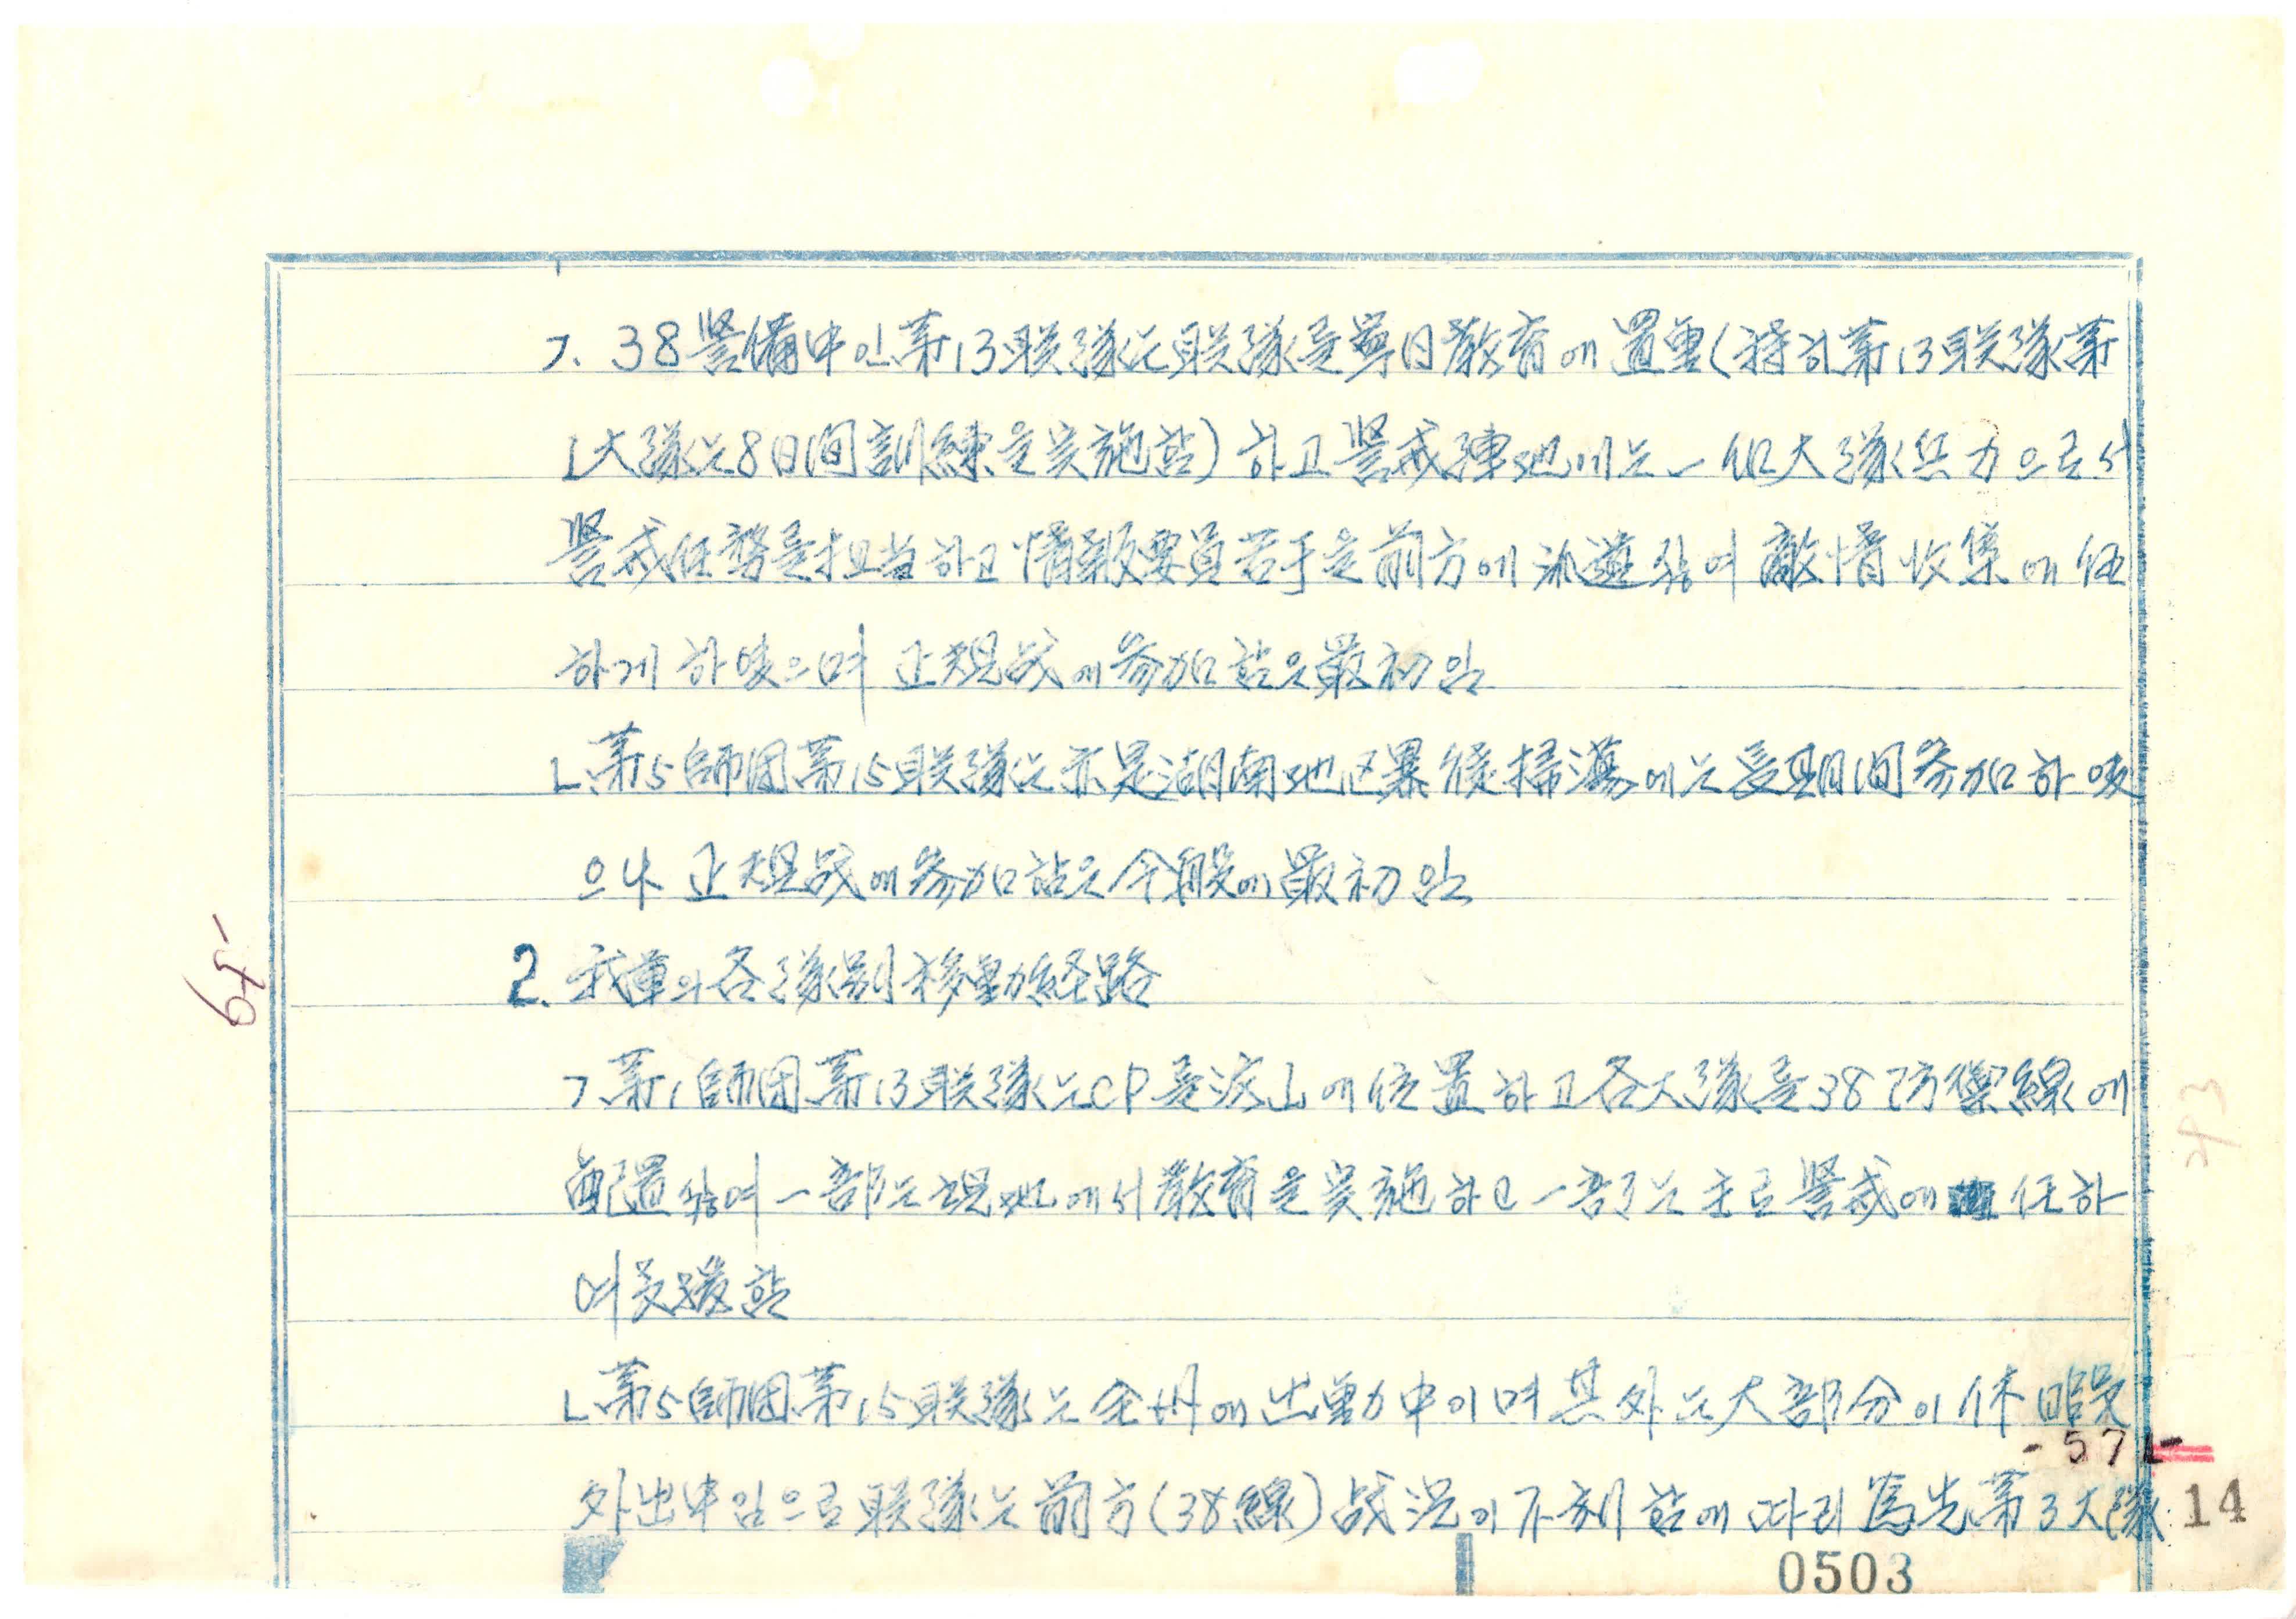 ㄱ. 38警備中인 第13联隊는 联隊를 每日 敎育에 置重(特히 第13联隊 第
1大隊는 8日間 訓練을 実施함) 하고 警戒陣地에는 一個大隊 兵力으로서
警戒任務를 担当하고 情報要員 若干을 前方에 派遣하여 敵情收集에 任
하게 하였으며 正規戰에 參加함은 最初임
ㄴ. 第5師団 第15联隊는 亦是 湖南地区 暴徒掃蕩에는 長期間 參加하였
으나 正規战에 參加함은 今般에 最初임
2. 我軍의 各隊別 移動経路
ㄱ. 第1師団 第13联隊는 CP를 汶山에 位置하고 各大隊를 38防禦線에
配置하여 一部는 現地에서 敎育을 実施하고 一部는 主로 警戒에 任하
여
ㄴ. 第5師団 第15联隊는 全州에 出動中이며 其外는 大部分이 休暇及
外出中임으로 联隊는 前方(38線) 战況이 不利함에 따라 爲先 第3大隊
65
-571-
14
0503